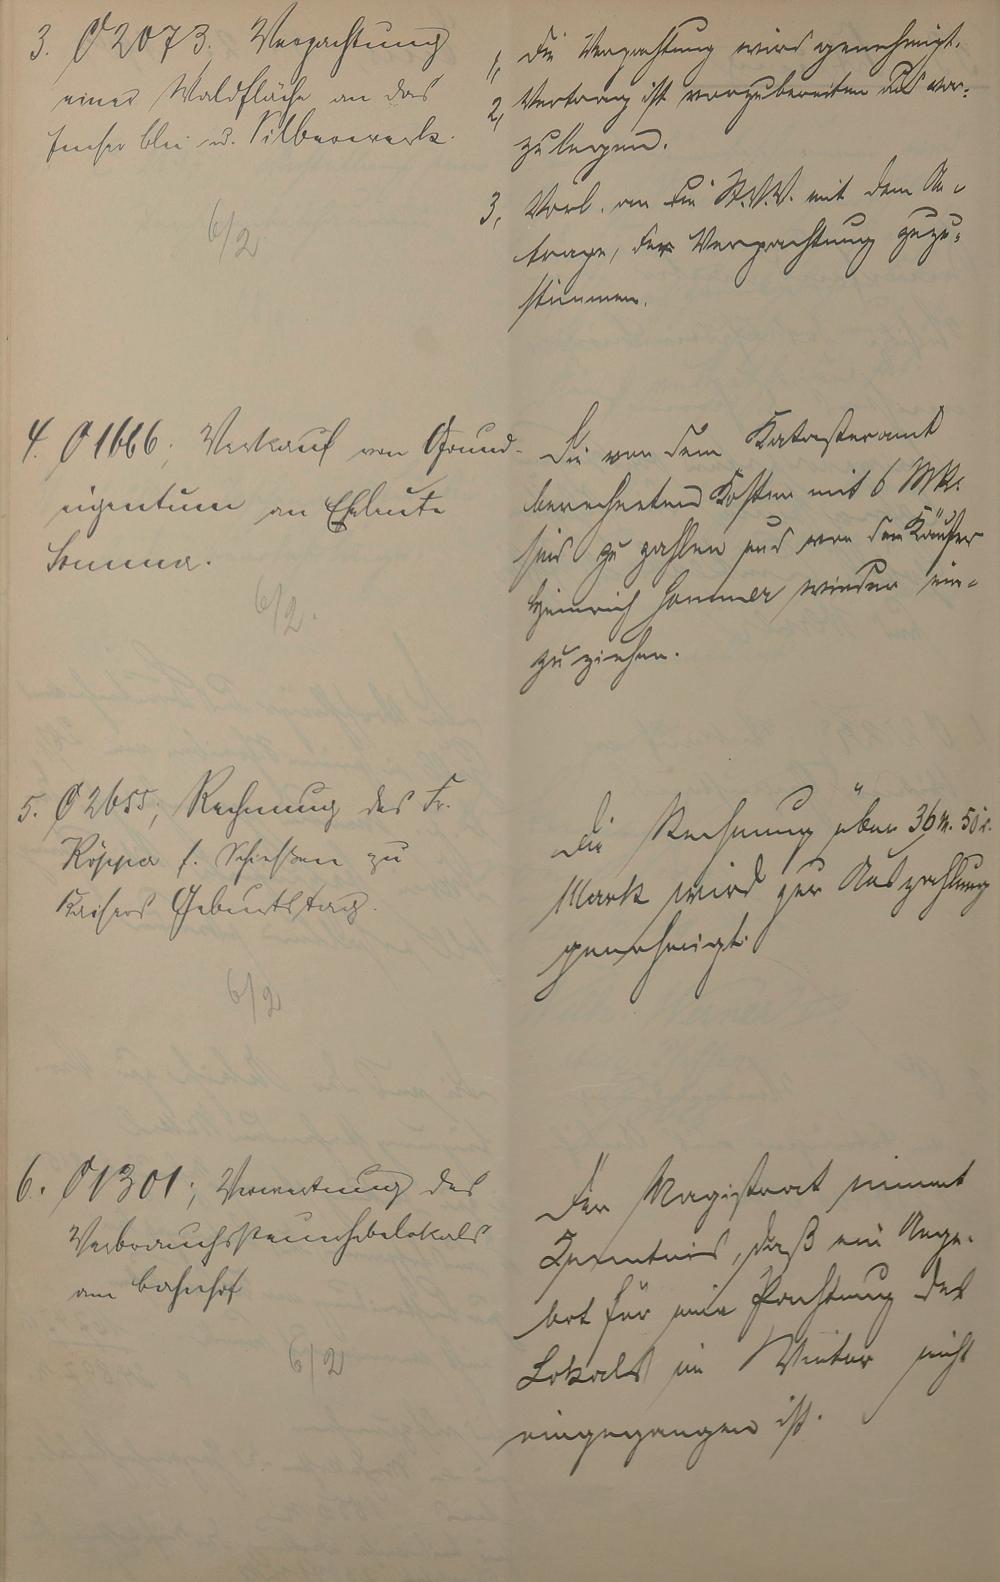 3. O 2073. Verpachtung
einer Waldfläche an das
Emser Blei u. Silberwerk.
6/2
1, Die Verpachtung wird genehmigt.
2, Vertrag ist vorzubereiten und vor-
zulegen.
3, Vorl. an die St.V.V. mit dem An-
trage, der Verpachtung zuzu-
stimmen.
4. O 1666; Verkauf von Grund-
eigentum an Eheleute
Sommer.
6/2.
Die von dem Katasteramt
berechneten Kosten mit 6 Mk.
sind zu zahlen und von dem Käufer
Heinrich Sommer wieder ein-
zuziehen.
5. O 2655; Rechnung des Fr.
f. Schießen zu
Kaisers Geburtstag.
6/2
Die Rechnung über 36 M. 50
Mark wird zur Auszahlung
genehmigt.
6. O 1301; Verwertung des
Verbrauchssteuerhebelokals
am Bahnhof
6/2
Der Magistrat nimmt
Kenntnis, daß ein Ange-
bot für eine Pachtung des
Lokals im Winter nicht
eingegangen ist.